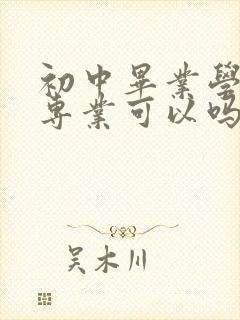 初中畢業學
專業可以嗎
吴木川